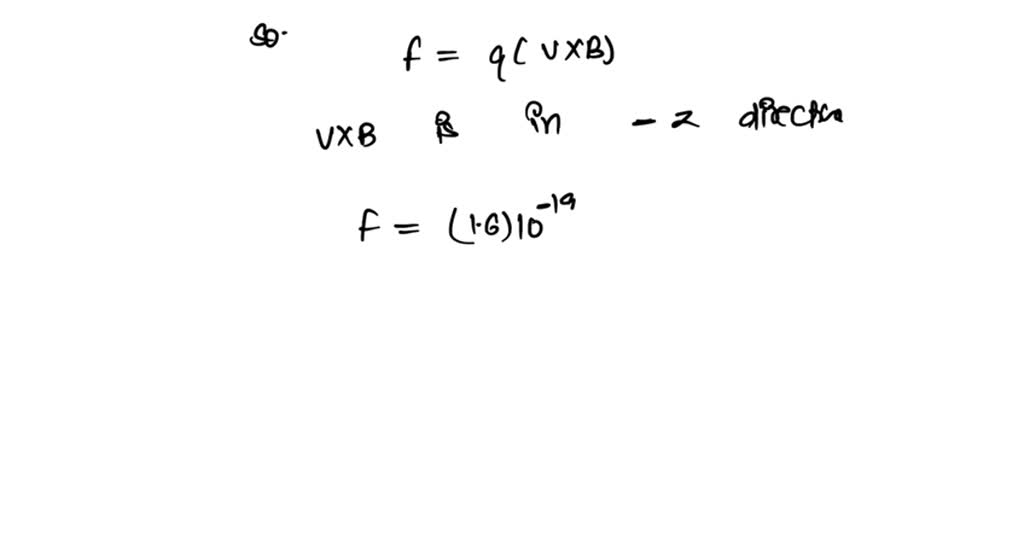 So.
f = q(V×B)
V×B is in - z direction
f = (1.6)10^-19